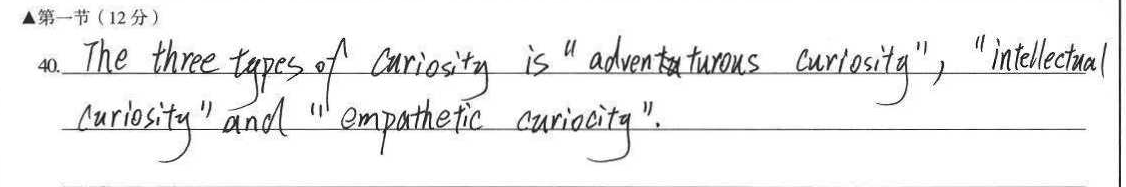 ▲第一节（12分）
40. The three types of curiosity is "adventurous curiosity", "intellectual
curiosity" and "empathetic curiocity".